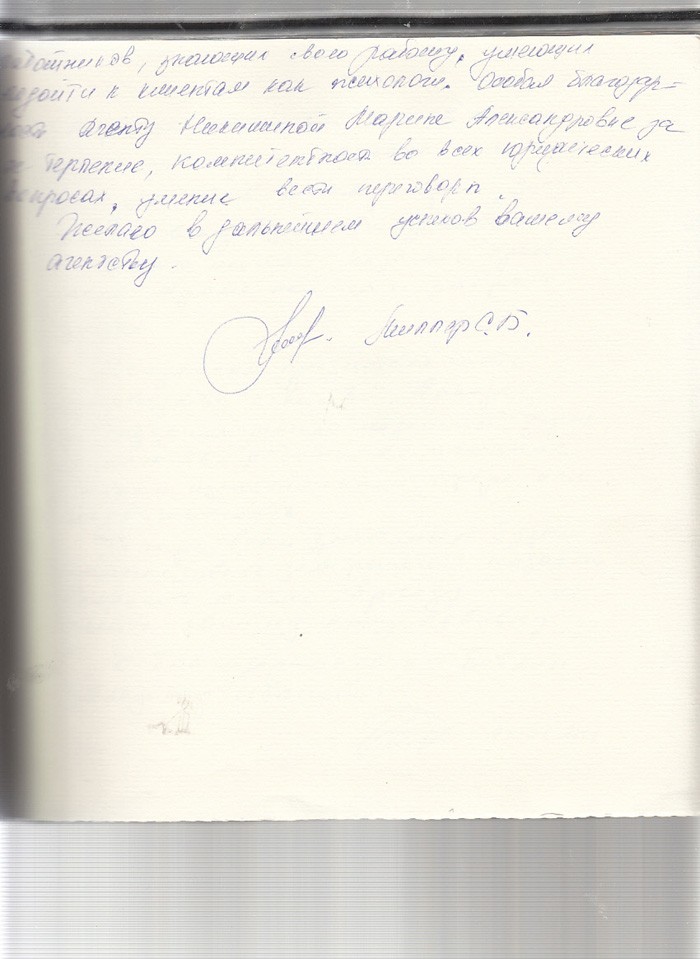 работников, знающих свою работу, умеющих
подойти к клиентам как психологи. Особая благодар-
ность агенту Никишиной Марине Александровне за
терпение, компитентность во всех юридических
вопросах, умение вести переговоры.
Желаю в дальнейшем успехов вашему
агентству.
С.Б.